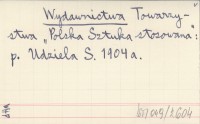 Wydawnictwa Towarzy-
stwa „Polska Sztuka stosowana":
p. Udziela S. 1904 a.